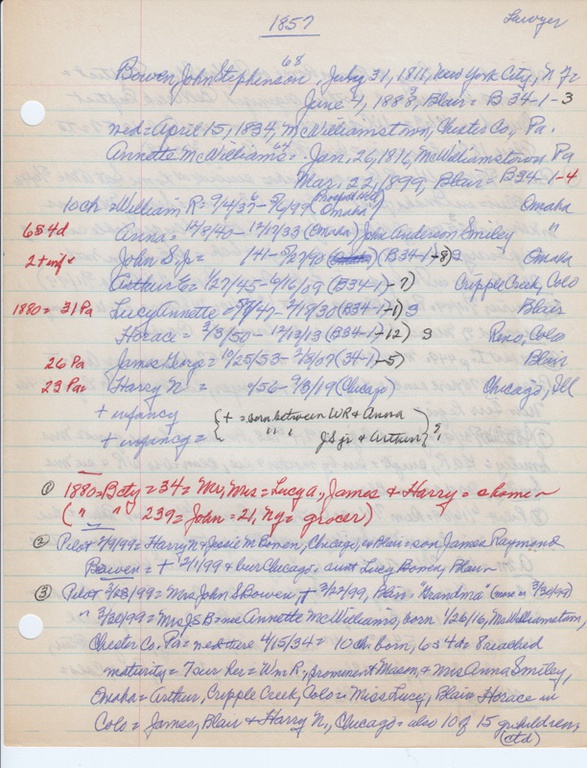 1857
Lawyer
68
Bowen, John Stephenson July 31, 1811, New York City, N Y =
June 4, 1888, Blair = B 34-1-3
med = April 15, 1834, McWilliamstown, Chester Co., Pa.
Annette McWilliams = Jan. 26, 1816, McWilliamstown, Pa
Mar. 22, 1899, Blair = B34-1-4
10 ch = William R = 9/4/37 - 5/6/99 (Prospect Hill Omaha) Omaha
6s 4d Anna = 12/8/40 - 12/17/33 (Omaha) John Anderson Smiley "
2 + inf John S. Jr = 1841 - 5/27/40 (B34-1-8) Omaha
Arthur = 1/27/45 - 6/16/09 (B34-1-7) Cripple Creek, Colo
1880 = 31 Pa Lucy Annette = 47 - 2/18/30 (B34-1-1) Blair
Horace = 3/3/50 - 12/13/13 (B34-1-12) Reno, Colo
26 Pa James George = 10/25/53 - 7/3/07 (34-1-5) Blair
23 Pa Harry N = 1856 - 9/8/19 (Chicago) Chicago, Ill
+ infancy { + = born between WR & Anna
+ infancy = " " " J S jr & Arthur }
① 1880 = Bcty = 34 = Mr, Mrs = Lucy A., James & Harry = home
( " " 239 = John = 21, Ny = grocer)
② Pilot 2/9/99 = Harry N & Jessie M Bowen, Chicago, Blair = son James Raymond
Bowen = + 12/1/99 & bur Chicago = aunt Lucy Bowen, Blair
③ Pilot 3/23/99 = Mrs John S Bowen + 3/22/99, Blair = "Grandma" (more in 3/30/99)
" 3/30/99 = Mrs J S B = nee Annette McWilliams, born 1/26/16, McWilliamstown,
Chester Co. Pa = med 4/15/34 = 10 ch born, 6s 4d = 8 reached
maturity = 7 sur her = Wm R., prominent Mason, & Mrs Anna Smiley,
Omaha = Arthur, Cripple Creek, Colo = Miss Lucy, Blair = Horace in
Colo = James, Blair & Harry N., Chicago = also 10 of 15 g children,
(ctd)